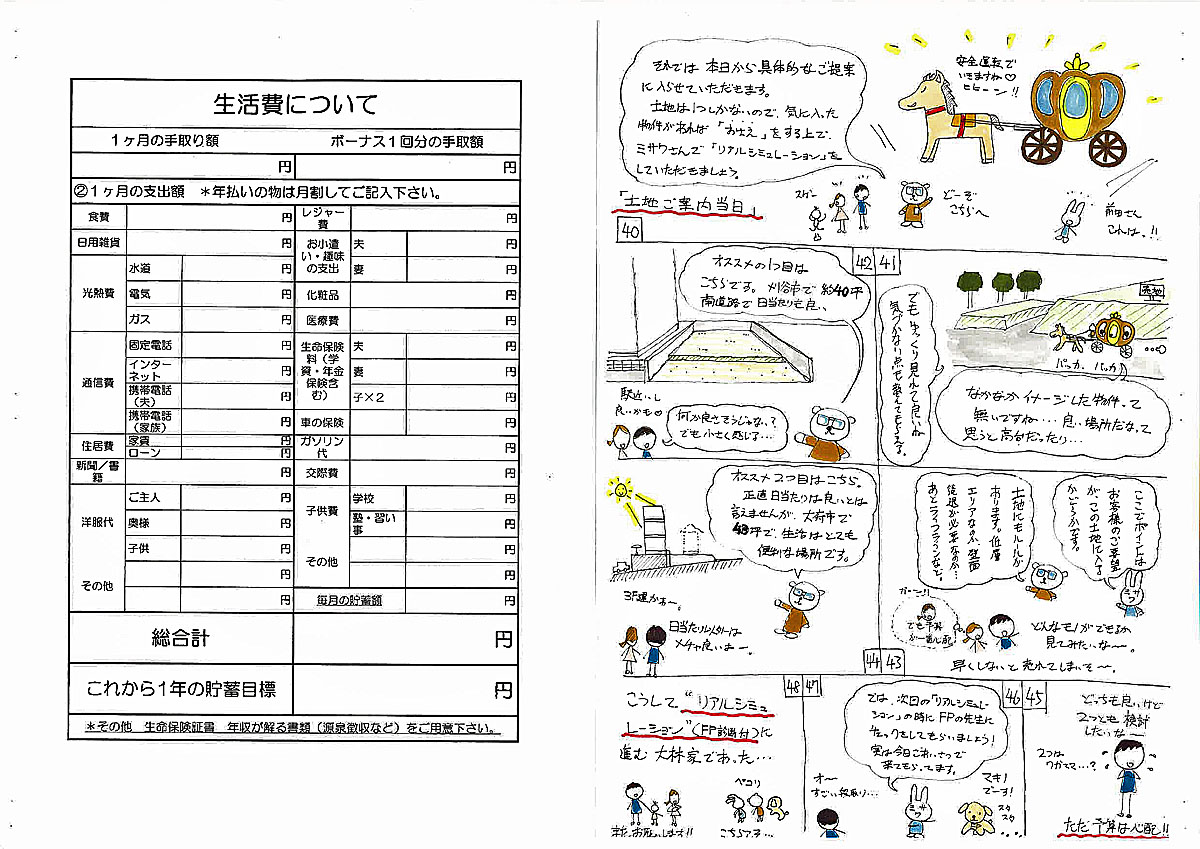 生活費について
1ヶ月の手取り額 ボーナス1回分の手取額
円 円
②1ヶ月の支出額 *年払いの物は月割してご記入下さい。
食費 円 レジャー費 円
日用雑貨 円 お小遣い・趣味の支出 夫 円
光熱費 水道 円 妻 円
電気 円 化粧品 円
ガス 円 医療費 円
通信費 固定電話 円 生命保険料(学資・年金保険含む) 夫 円
インターネット 円 妻 円
携帯電話(夫) 円 子×2 円
携帯電話(家族) 円 車の保険 円
住居費 家賃 円 ガソリン代 円
ローン 円
新聞/書籍 円 交際費 円
洋服代 ご主人 円 子供費 学校 円
奥様 円 塾・習い事 円
子供 円 その他 円
その他 円 円
円 毎月の貯蓄額 円
総合計 円
これから1年の貯蓄目標 円
*その他 生命保険証書 年収が解る書類(源泉徴収など)をご用意下さい。
それでは本日から具体的なご提案
に入らせていただきます。
土地は1つしかないので、気に入った
物件があれば「おさえ」をする上で、
ミサワさんで「リアルシミュレーション」を
していただきましょう。
安全運転で
いきますね♡
ヒヒーン!!
「土地ご案内当日」
スゲー
どーぞ
こちらへ
前田さん
これは、!!
40
41
売地
パッカ、パッカ♪
なかなかイメージした物件って
無いですね… 良い場所だなって
思うと高台だったり…
でもゆっくり見れて良いね
気づかない点も教えてもらえる。
42
オススメの1つ目は
こちらです。刈谷市で約40坪
南道路で日当たりも良い
駅近いし
良いかも♡
何か良さそうじゃない?
でも小さく感じる…
43
ここでポイントは
お客様のご要望
が、この土地に入る
かどうかです。
土地にもルールが
あります。低層
エリアなのか、壁面
後退が必要なのか…
あとライフラインなど。
ガーン!!
でも予算
が一番心配
どんなモノができるか
見てみたいな〜。
早くしないと売れてしまいそ〜。
44
オススメ2つ目はこちら。
正直日当たりは良いとは
言えませんが、大府市で
48坪で、生活はとても
便利な場所です。
3F建かぁー。
日当たり以外は
メチャ良いねー。
45
どっちも良いけど
2つとも検討
したいな〜
2つは
ワガママ…?
ただ予算は心配!!
46
では、次回の「リアルシミュレー
ション」の時にFPの先生に
チェックをしてもらいましょう!
実は今日ごあいさつで
来てもらってます。
オ〜
すごい段取り…
ミサワ
マキノ
でーす!
スタ
スタ
47
48
こうして"リアルシミュ
レーション"(FP診断付)に
進む大林家であった…
ペコリ
お願いします!!
こちらこそ…